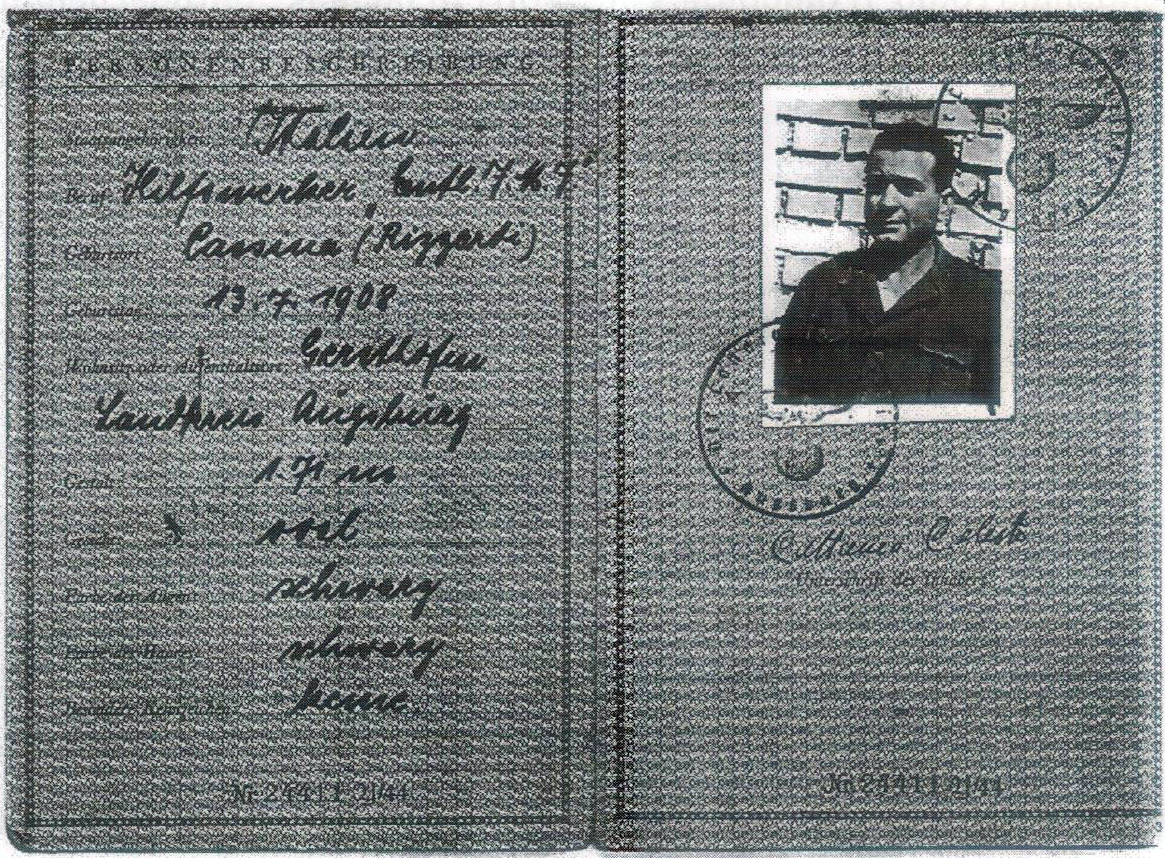 PERSONENBESCHREIBUNG
Staatsangehörigkeit Italien
Beruf Hilfswerker,
Geburtsort Cassina (Rizzardi)
Geburtstag 13.7.1908
Wohnung oder Aufenthaltsort Gersthofen
Landkreis Augsburg
Gestalt 1.71 m
Gesicht oval
Farbe der Augen schwarz
Farbe des Haares schwarz
Besondere Kennzeichen keine
Nr. 24411 21/44
Cattaneo Celeste
Unterschrift des Inhabers
Nr. 24411 21/44